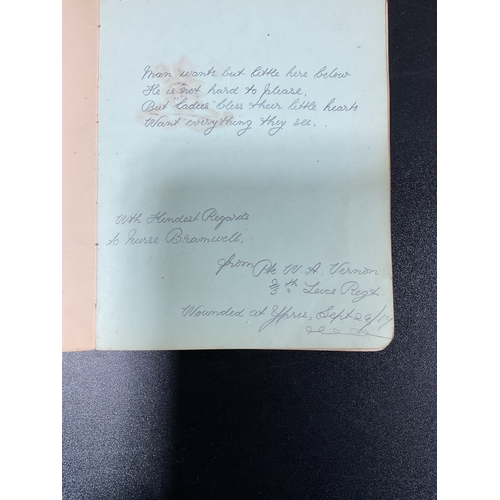 Man wants but little here below
He is not hard to please,
But "Ladies" bless their little hearts
Want everything they see.
With Kindest Regards
to Nurse Bramwell,
from Pte W. A. Vernon
Leics Regt
Wounded at Ypres, Sept 29/17